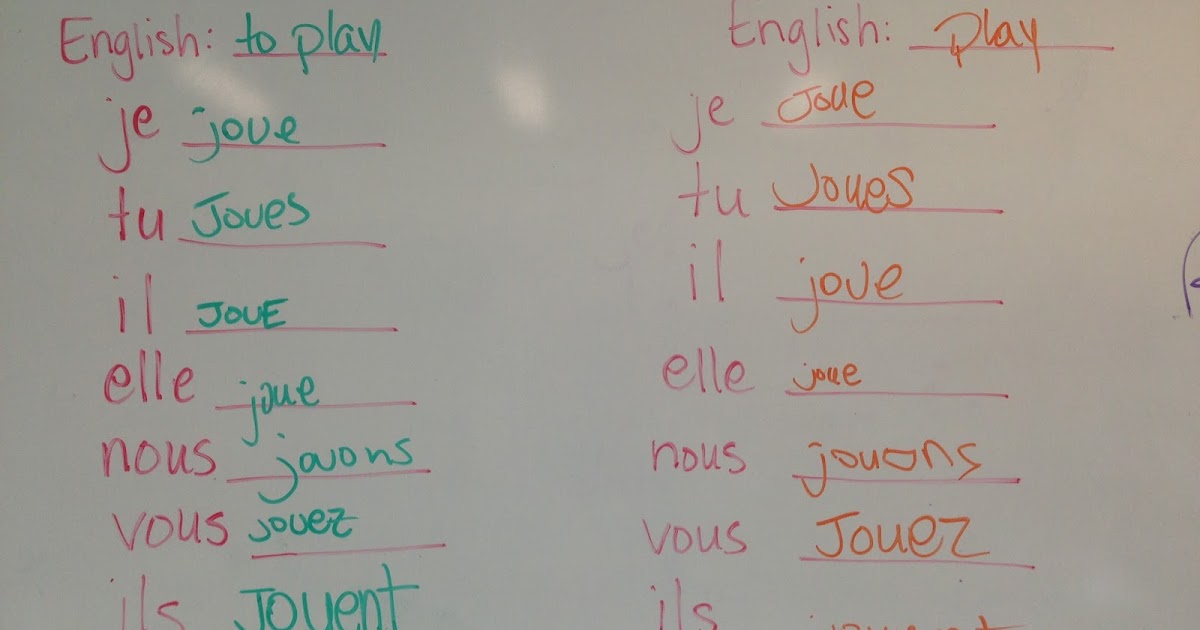 English: to play
je joue
tu Joues
il JOUE
elle joue
nous jouons
vous jouez
ils Jouent
English: Play
je Joue
tu Joues
il joue
elle joue
nous jouons
vous Jouez
ils